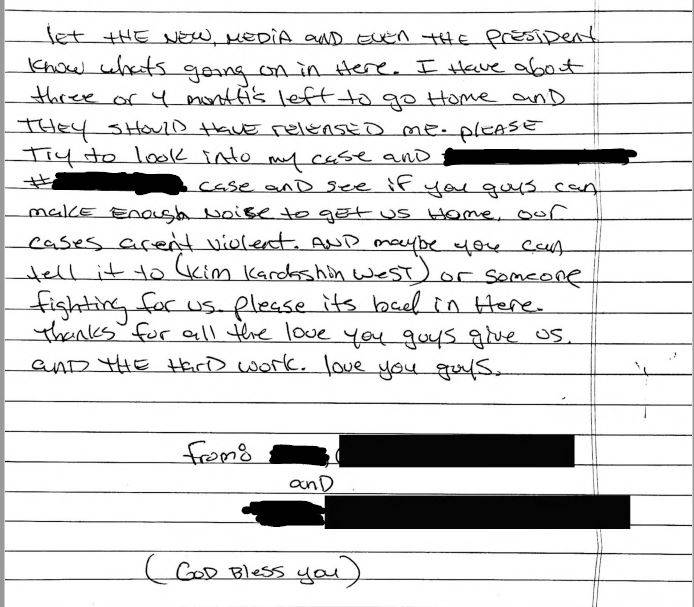 let THE NEW, MEDIA and EVEN THE President
Know whats going on in Here. I Have about
three or 4 month's left to go Home and
THEY SHOULD HAVE released me. please
Try to look into my case and
# case and see if you guys can
make Enough Noise to get us Home, our
cases aren't violent. AND maybe you can
tell it to (kim kardashin west) or someone
fighting for us. please its bad in Here.
thanks for all the love you guys give us.
and THE HarD work. love you guys.
from:
and
(GOD Bless you)